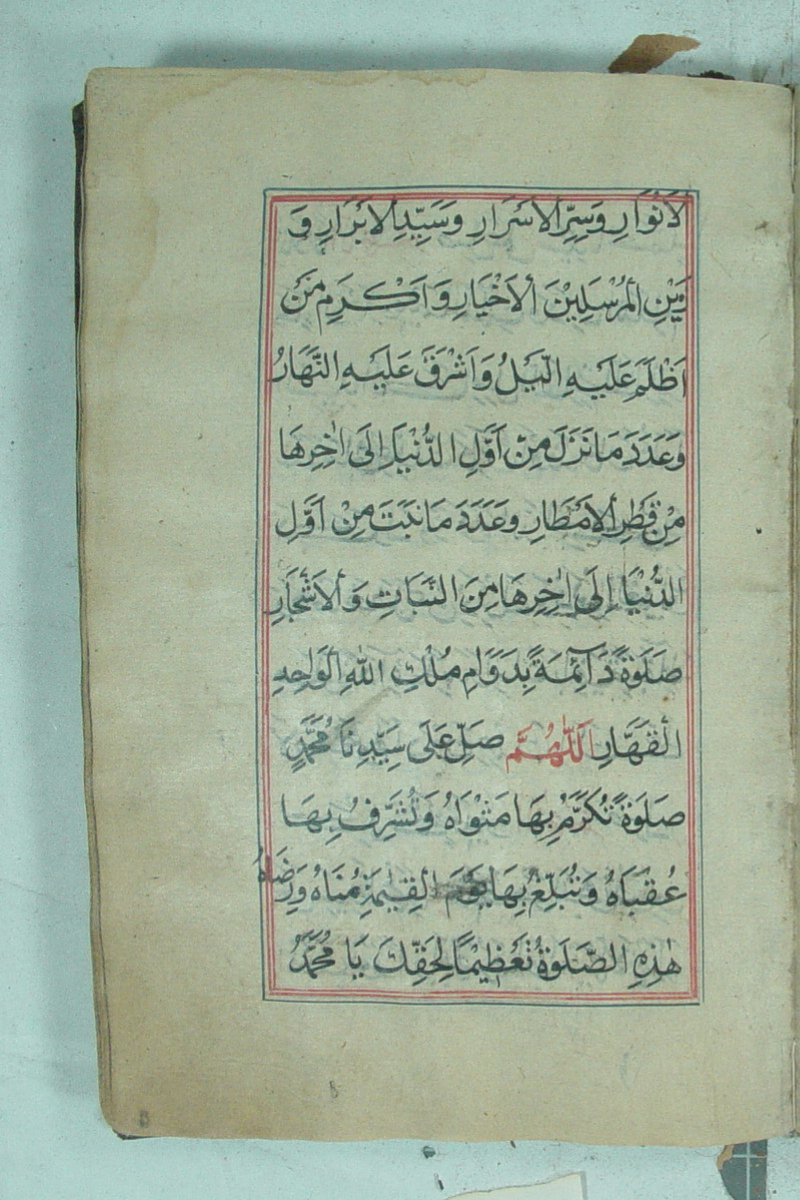 لَانْوَارِ وَسِرِّ الْاَسْرَارِ وَسَيِّدِ الْاَبْرَارِ وَ
زَيْنِ الْمُرْسَلِيْنَ الْاَخْيَارِ وَاَكْرَمِ مَنْ
اَظْلَمَ عَلَيْهِ الَّيْلُ وَاَشْرَقَ عَلَيْهِ النَّهَارُ
وَعَدَدَ مَا نَزَلَ مِنْ اَوَّلِ الدُّنْيَا اِلَى اٰخِرِهَا
مِنْ قَطْرِ الْاَمْطَارِ وَعَدَدَ مَا نَبَتَ مِنْ اَوَّلِ
الدُّنْيَا اِلَى اٰخِرِهَا مِنَ النَّبَاتِ وَالْاَشْجَارِ
صَلٰوةً دَآئِمَةً بِدَوَامِ مُلْكِ اللّٰهِ الْوَاحِدِ
الْقَهَّارِ اَللّٰهُمَّ صَلِّ عَلَى سَيِّدِنَا مُحَمَّدٍ
صَلَوةً تُكَرِّمُ بِهَا مَثْوَاهُ وَتُشَرِّفُ بِهَا
عُقْبَاهُ وَتُبَلِّغُ بِهَا يَوْمَ الْقِيٰمَةِ مُنَاهُ وَرِضَاهُ
هٰذِهِ الصَّلَوةُ تَعْظِيْمًا لِحَقِّكَ يَا مُحَمَّدُ